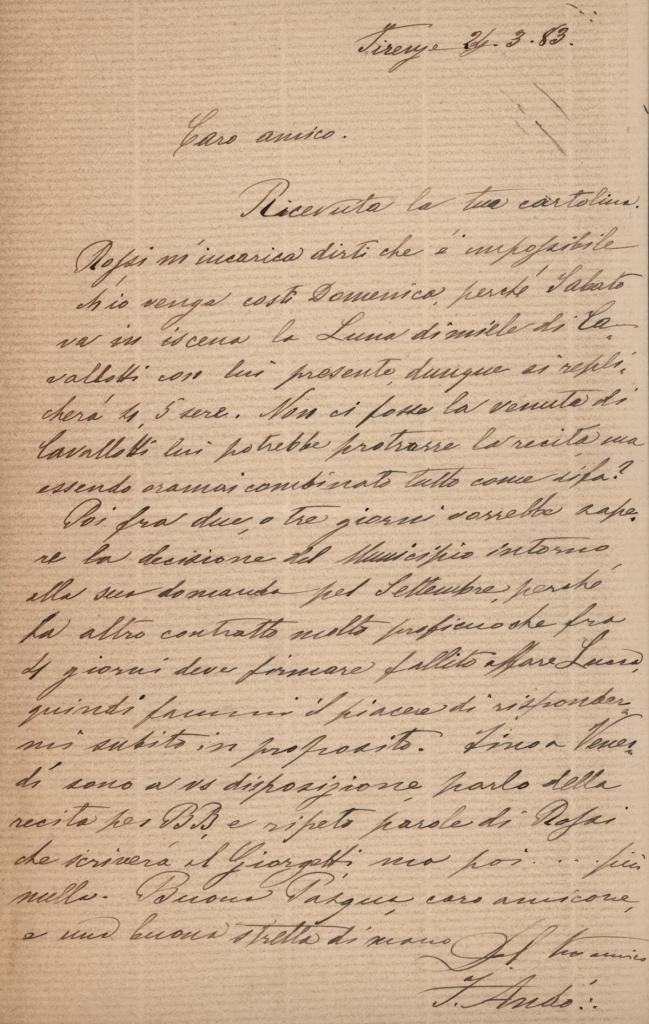 Firenze 24.3.83.
Caro amico.
Ricevuta la tua cartolina.
Rossi m'incarica dirti che è impossibile
ch'io venga costì Domenica, perché Sabato
va in iscena la Luna di miele di Ca-
vallotti con lui presente, dunque si repli-
cherà 4, 5 sere. Non ci fosse la venuta di
Cavallotti lui potrebbe protrarre la recita ma
essendo oramai combinato tutto come si fa?
Poi fra due, o tre giorni vorrebbe sape-
re la decisione del Municipio intorno
alla sua domanda pel Settembre, perché
ha altro contratto molto proficuo che fra
4 giorni deve firmare fallito affare Lucca,
quindi fammi il piacere di risponder-
mi subito in proposito. Fino a Vener-
dì sono a vs disposizione, parlo della
recita per BB, e ripeto parole di Rossi
che scriverà al Giorgetti ma poi... più
nulla. Buona Pasqua, caro amicone,
e una buona stretta di mano
Del tuo amico
F. Andó:.